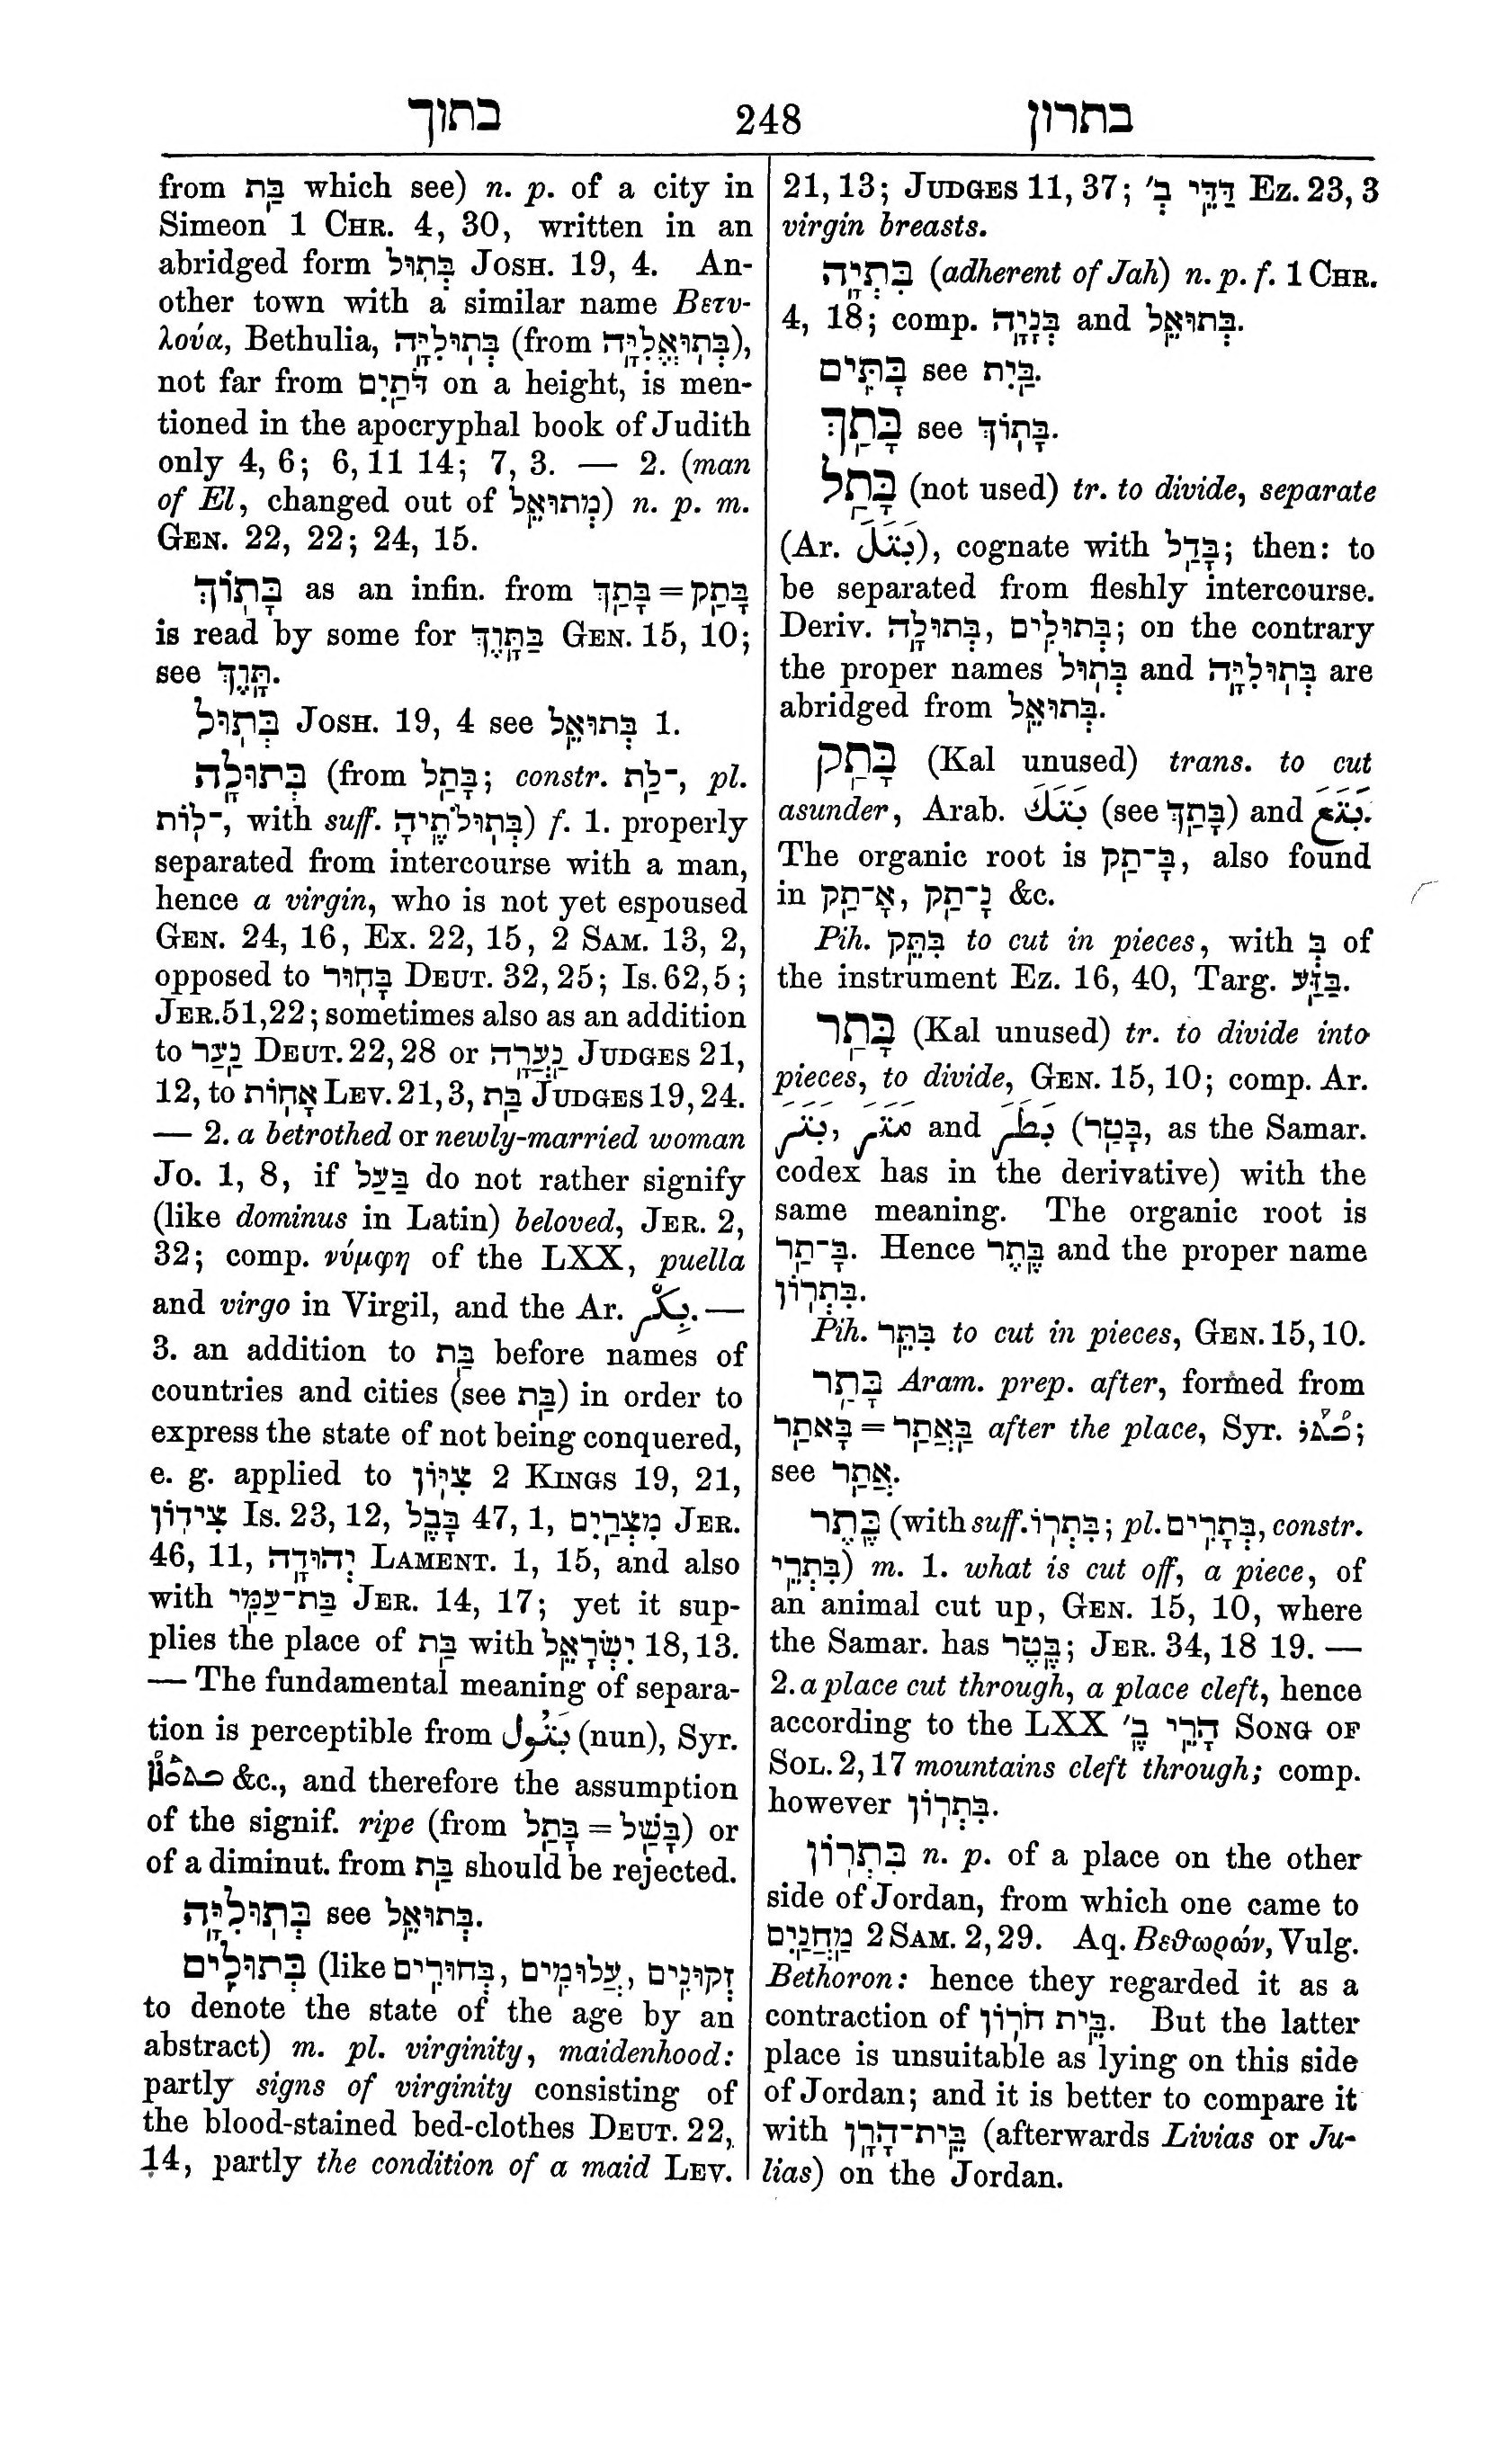 בתוך 248 בתרון
from בַּת which see) n. p. of a city in
Simeon 1 CHR. 4, 30, written in an
abridged form בְּתוּל JOSH. 19, 4. An-
other town with a similar name Βετυ-
λούα, Bethulia, בְּתוּלִיָּה (from בְּתוּאֱלִיָּה),
not far from דֹּתַיִם on a height, is men-
tioned in the apocryphal book of Judith
only 4, 6; 6, 11 14; 7, 3. — 2. (man
of El, changed out of מְתוּאֵל) n. p. m.
GEN. 22, 22; 24, 15.
בָּתוֹךְ as an infin. from בָּתַךְ = בָּתַק
is read by some for בַּתָּוֶךְ GEN. 15, 10;
see תָּוֶךְ.
בְּתוּל JOSH. 19, 4 see בְּתוּאֵל 1.
בְּתוּלָה (from בָּתַל; constr. ־לַת, pl.
־לוֹת, with suff. בְּתוּלֹתֶיהָ) f. 1. properly
separated from intercourse with a man,
hence a virgin, who is not yet espoused
GEN. 24, 16, EX. 22, 15, 2 SAM. 13, 2,
opposed to בָּחוּר DEUT. 32, 25; IS. 62, 5;
JER. 51, 22; sometimes also as an addition
to נַעַר DEUT. 22, 28 or נַעֲרָה JUDGES 21,
12, to אָחוֹת LEV. 21, 3, בַּת JUDGES 19, 24.
— 2. a betrothed or newly-married woman
JO. 1, 8, if בַּעַל do not rather signify
(like dominus in Latin) beloved, JER. 2,
32; comp. νύμφη of the LXX, puella
and virgo in Virgil, and the Ar. بِكْر. —
3. an addition to בַּת before names of
countries and cities (see בַּת) in order to
express the state of not being conquered,
e. g. applied to צִיּוֹן 2 KINGS 19, 21,
צִידוֹן IS. 23, 12, בָּבֶל 47, 1, מִצְרַיִם JER.
46, 11, יְהוּדָה LAMENT. 1, 15, and also
with בַּת־עַמִּי JER. 14, 17; yet it sup-
plies the place of בַּת with יִשְׂרָאֵל 18, 13.
— The fundamental meaning of separa-
tion is perceptible from بَتُول (nun), Syr.
&c., and therefore the assumption
of the signif. ripe (from בָּתַל = בָּשַׁל) or
of a diminut. from בַּת should be rejected.
בְּתוּלִיָּה see בְּתוּאֵל.
בְּתוּלִים (like בְּחוּרִים, עֲלוּמִים, זְקוּנִים
to denote the state of the age by an
abstract) m. pl. virginity, maidenhood:
partly signs of virginity consisting of
the blood-stained bed-clothes DEUT. 22,
14, partly the condition of a maid LEV.
21, 13; JUDGES 11, 37; דַּדֵּי בְ׳ EZ. 23, 3
virgin breasts.
בִּתְיָה (adherent of Jah) n. p. f. 1 CHR.
4, 18; comp. בְּנָיָה and בְּתוּאֵל.
בָּתִּים see בַּיִת.
בָּתַךְ see בָּתוֹךְ.
בָּתַל (not used) tr. to divide, separate
(Ar. بَتَلَ), cognate with בָּדַל; then: to
be separated from fleshly intercourse.
Deriv. בְּתוּלָה, בְּתוּלִים; on the contrary
the proper names בְּתוּל and בְּתוּלִיָּה are
abridged from בְּתוּאֵל.
בָּתַק (Kal unused) trans. to cut
asunder, Arab. بَتَكَ (see בָּתַךְ) and بَتَعَ.
The organic root is בָּ־תַק, also found
in אָ־תַק, נָ־תַק &c.
Pih. בִּתֵּק to cut in pieces, with בְּ of
the instrument EZ. 16, 40, Targ. בַּזַּע.
בָּתַר (Kal unused) tr. to divide into
pieces, to divide, GEN. 15, 10; comp. Ar.
بَتَرَ, مَتَرَ and بَطَرَ (בָּטַר, as the Samar.
codex has in the derivative) with the
same meaning. The organic root is
בָּ־תַר. Hence בֶּתֶר and the proper name
בִּתְרוֹן.
Pih. בִּתֵּר to cut in pieces, GEN. 15, 10.
בָּתַר Aram. prep. after, formed from
בָּאתַר = בַּאֲתַר after the place, Syr. ܒܳܬܰܪ;
see אֲתַר.
בֶּתֶר (with suff. בִּתְרוֹ; pl. בְּתָרִים, constr.
בִּתְרֵי) m. 1. what is cut off, a piece, of
an animal cut up, GEN. 15, 10, where
the Samar. has בֶּטֶר; JER. 34, 18 19. —
2. a place cut through, a place cleft, hence
according to the LXX הָרֵי בֶ׳ SONG OF
SOL. 2, 17 mountains cleft through; comp.
however בִּתְרוֹן.
בִּתְרוֹן n. p. of a place on the other
side of Jordan, from which one came to
מַחֲנַיִם 2 SAM. 2, 29. Aq. Βεθωρών, Vulg.
Bethoron: hence they regarded it as a
contraction of בֵּית חֹרוֹן. But the latter
place is unsuitable as lying on this side
of Jordan; and it is better to compare it
with בֵּית־הָרָן (afterwards Livias or Ju-
lias) on the Jordan.